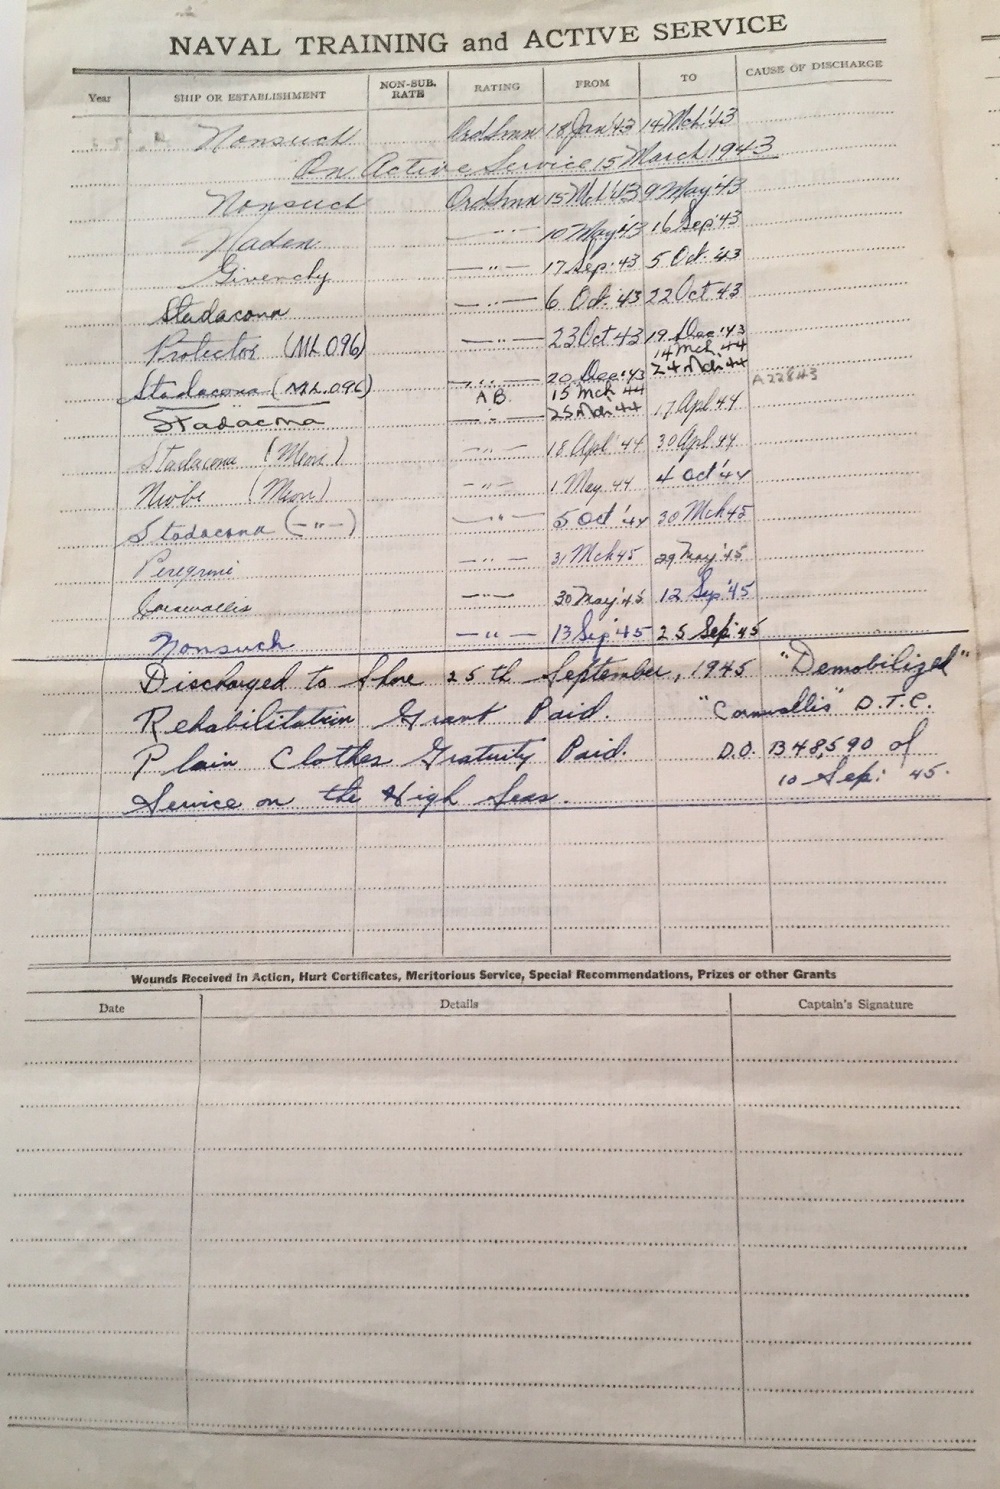 NAVAL TRAINING and ACTIVE SERVICE
Year SHIP OR ESTABLISHMENT NON-SUB. RATE RATING FROM TO CAUSE OF DISCHARGE
Nonsuch Ord Smn 18 Jan '43 14 Mch '43
On Active Service 15 March 1943
Nonsuch Ord Smn 15 Mch '43 9 May '43
Naden —"— 10 May '43 16 Sep '43
Givenchy —"— 17 Sep. '43 5 Oct. '43
Stadacona —"— 6 Oct. '43 22 Oct 43
Protector (ML 096) —"— 23 Oct 43 19 Dec '43
14 Mch. 44
Stadacona (ML. 096) —"— 20 Dec '43 24 Mch 44
A.B. 15 Mch 44 A22843
Stadacona —"— 25 Mch 44 17 Apl 44
Stadacona —"— 18 Apl '44 30 Apl. 44
Niobe —"— 1 May 44 4 Oct '44
Stadacona (—"—) —"— 5 Oct '44 30 Mch 45
Peregrine —"— 31 Mch 45 29 May '45
Cornwallis —"— 30 May '45 12 Sep '45
Nonsuch —"— 13 Sep '45 25 Sep '45
Discharged to Shore 25th September, 1945 "Demobilized"
Rehabilitation Grant Paid. "Cornwallis" D.T.C.
Plain Clothes Gratuity Paid. D.O. B48590 of
10 Sep: '45.
Service on the High Seas.
Wounds Received in Action, Hurt Certificates, Meritorious Service, Special Recommendations, Prizes or other Grants
Date Details Captain's Signature